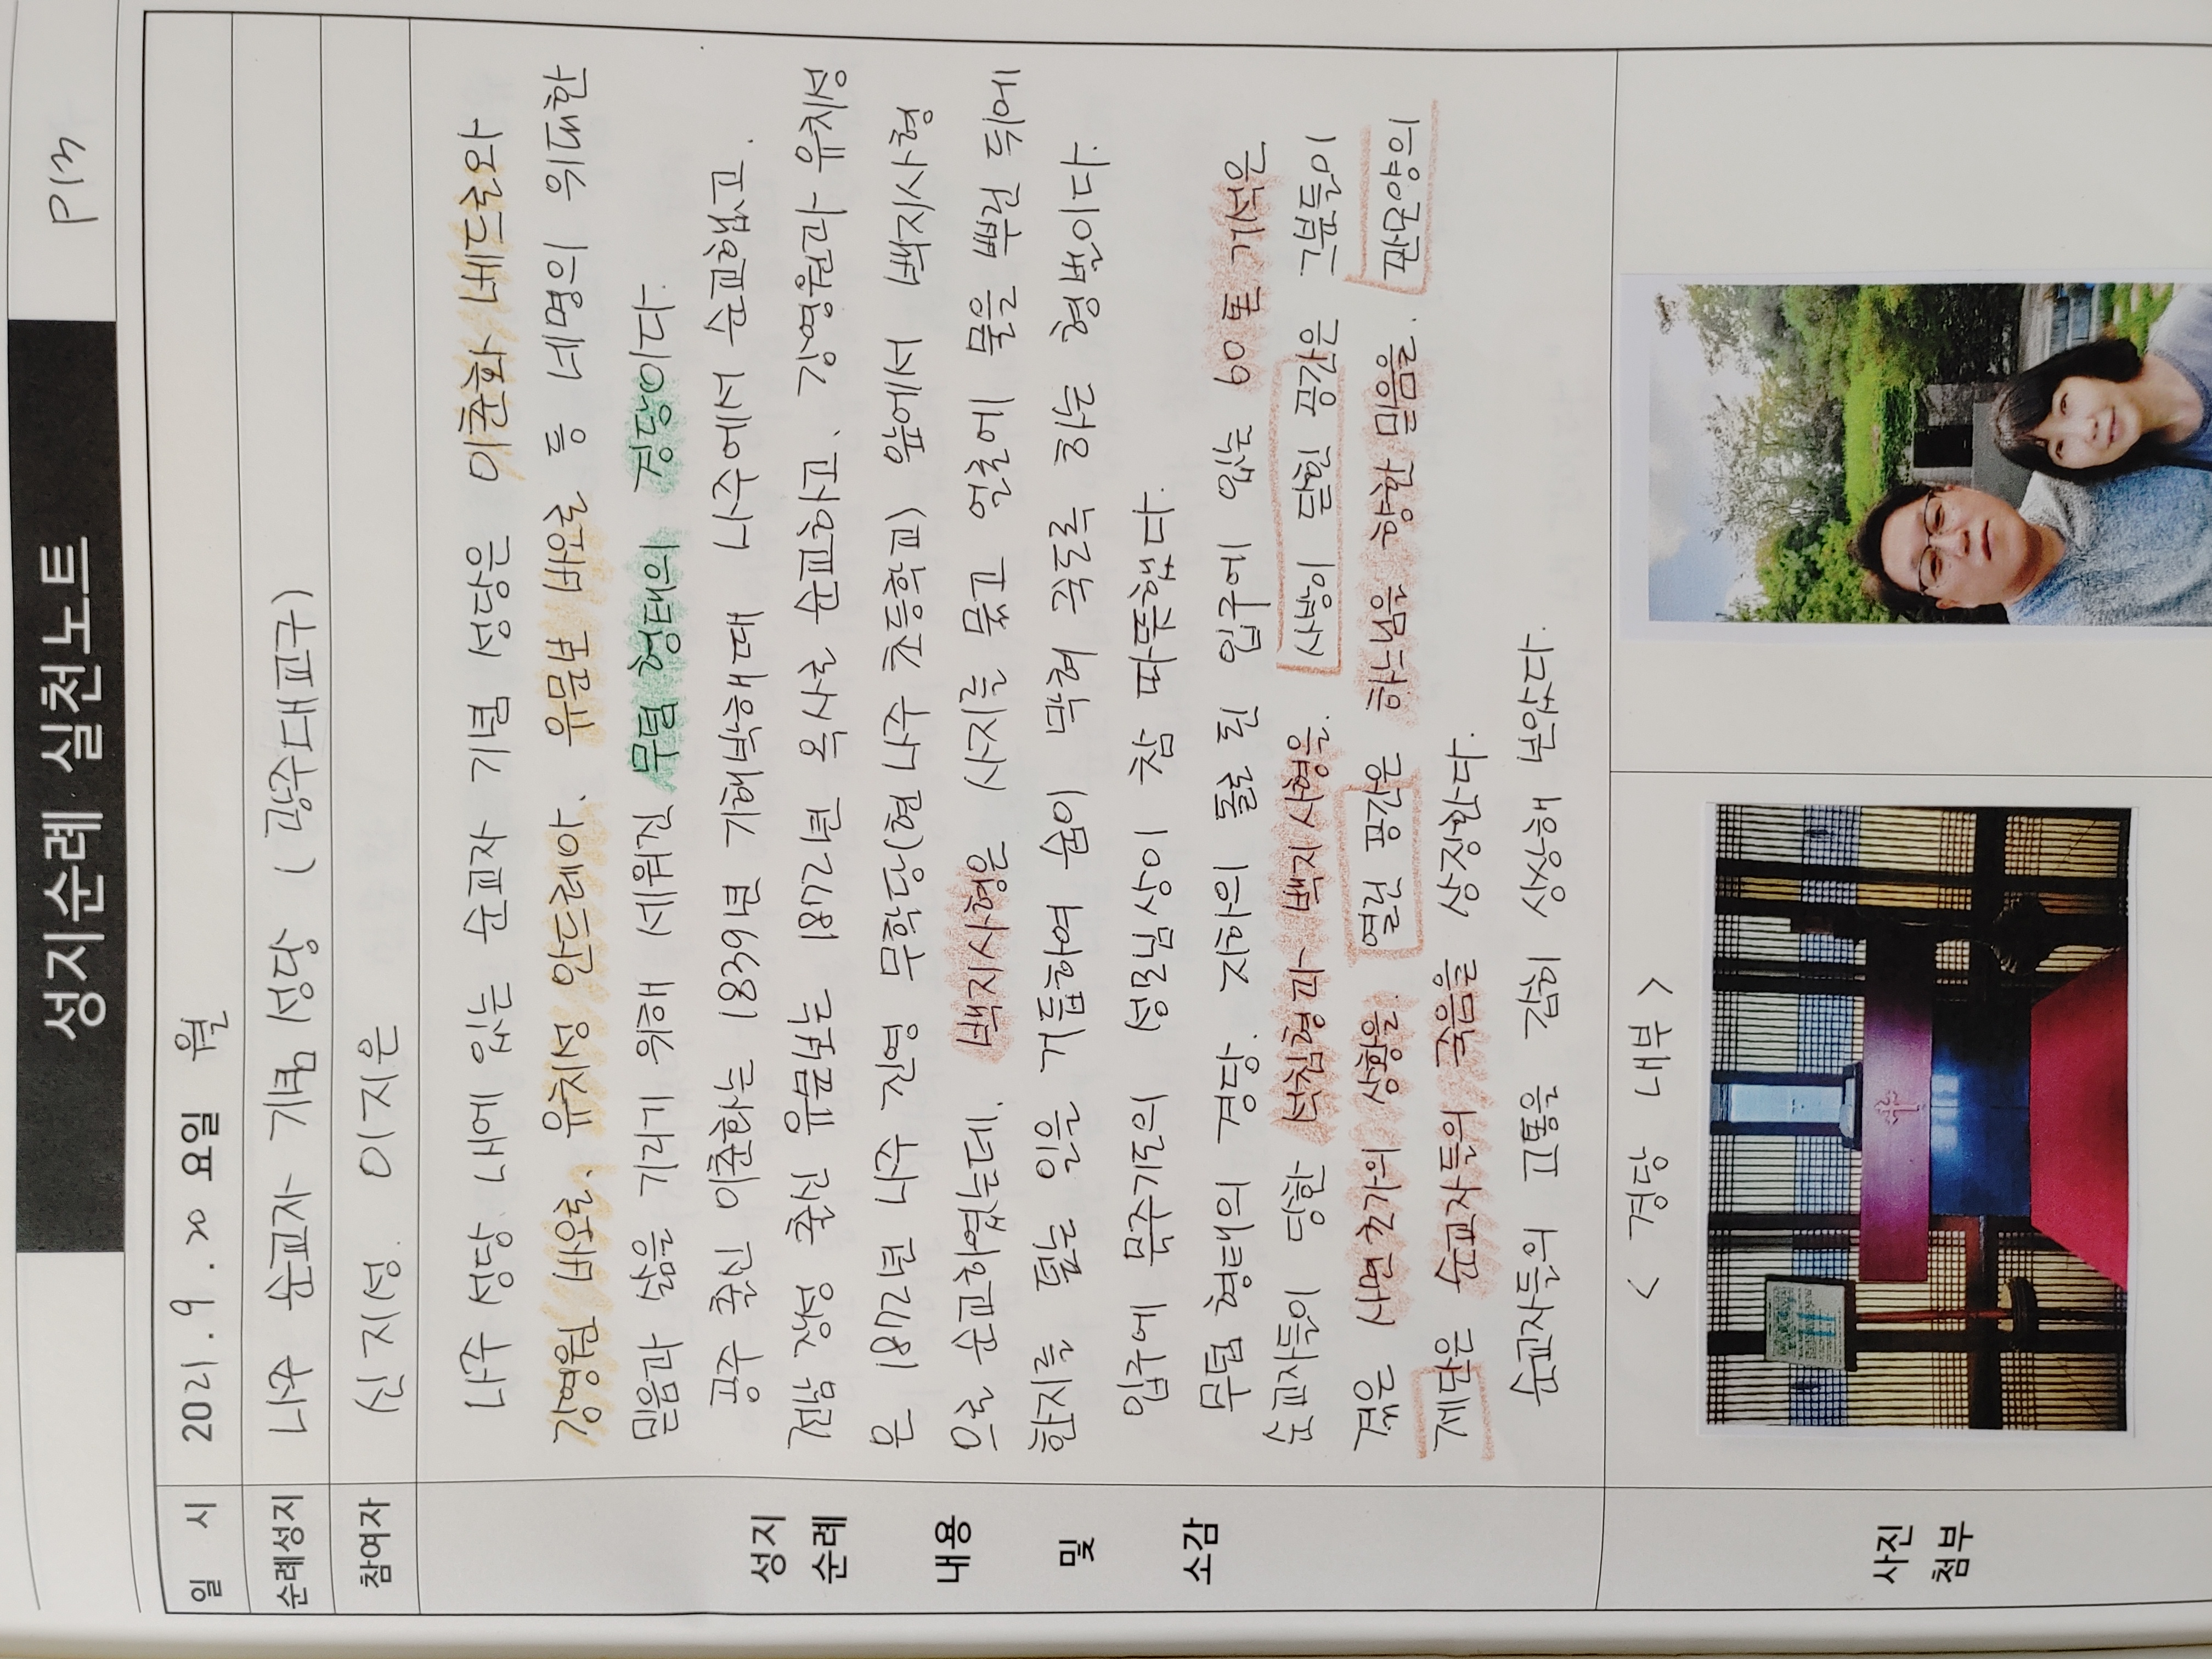 성지순례 실천노트
P13
일 시
2021. 9. 20 요일 월
순례성지
나주 순교자 기념 성당 (광주대교구)
참여자
신지성. 이지은
성지
순례
내용
및
소감
나주 성당 내에 있는 순교자 기념 성당은 이춘화 베드로와
강영원 바오로, 유치성 안드레아, 유문보 바오로 등 네명의 위대한
믿음과 삶을 기리기 위해 세워진 무덤 형태의 경당이다.
공주 출신 이춘화는 1839년 기해박해때 나주에서 순교했고,
전남 장성 출신 유문보는 1872년 옥사로 순교하고, 강영원과 유치성
은 1872년 나주 진영 무학당(현 나주 초등학교) 앞에서 백지사형
으로 순교하였는데, 백지사형은 사지를 묶고 얼굴에 물을 뿌린 뒤에
한지를 덮는 일을 거듭하여 숨이 막혀 죽도록 하는 형벌이다.
입구에 묵주기도의 성모님상이 참 따뜻했다.
무덤 형태의 경당. 지하의 돌로 된 입구에 있는 60톤 거석은
순교자들이 당한 석침형과 백지사형을, 사방이 닫힌 공간은 그분들이
겪은 사면초가의 상황을, 열린 공간은 하느님을 향한 믿음을, 관모양의
제단은 순교자들의 죽음을 상징한다.
순교자들의 고통을 감히 상상해 보았다.
사진
첨부
< 경당 내부 >